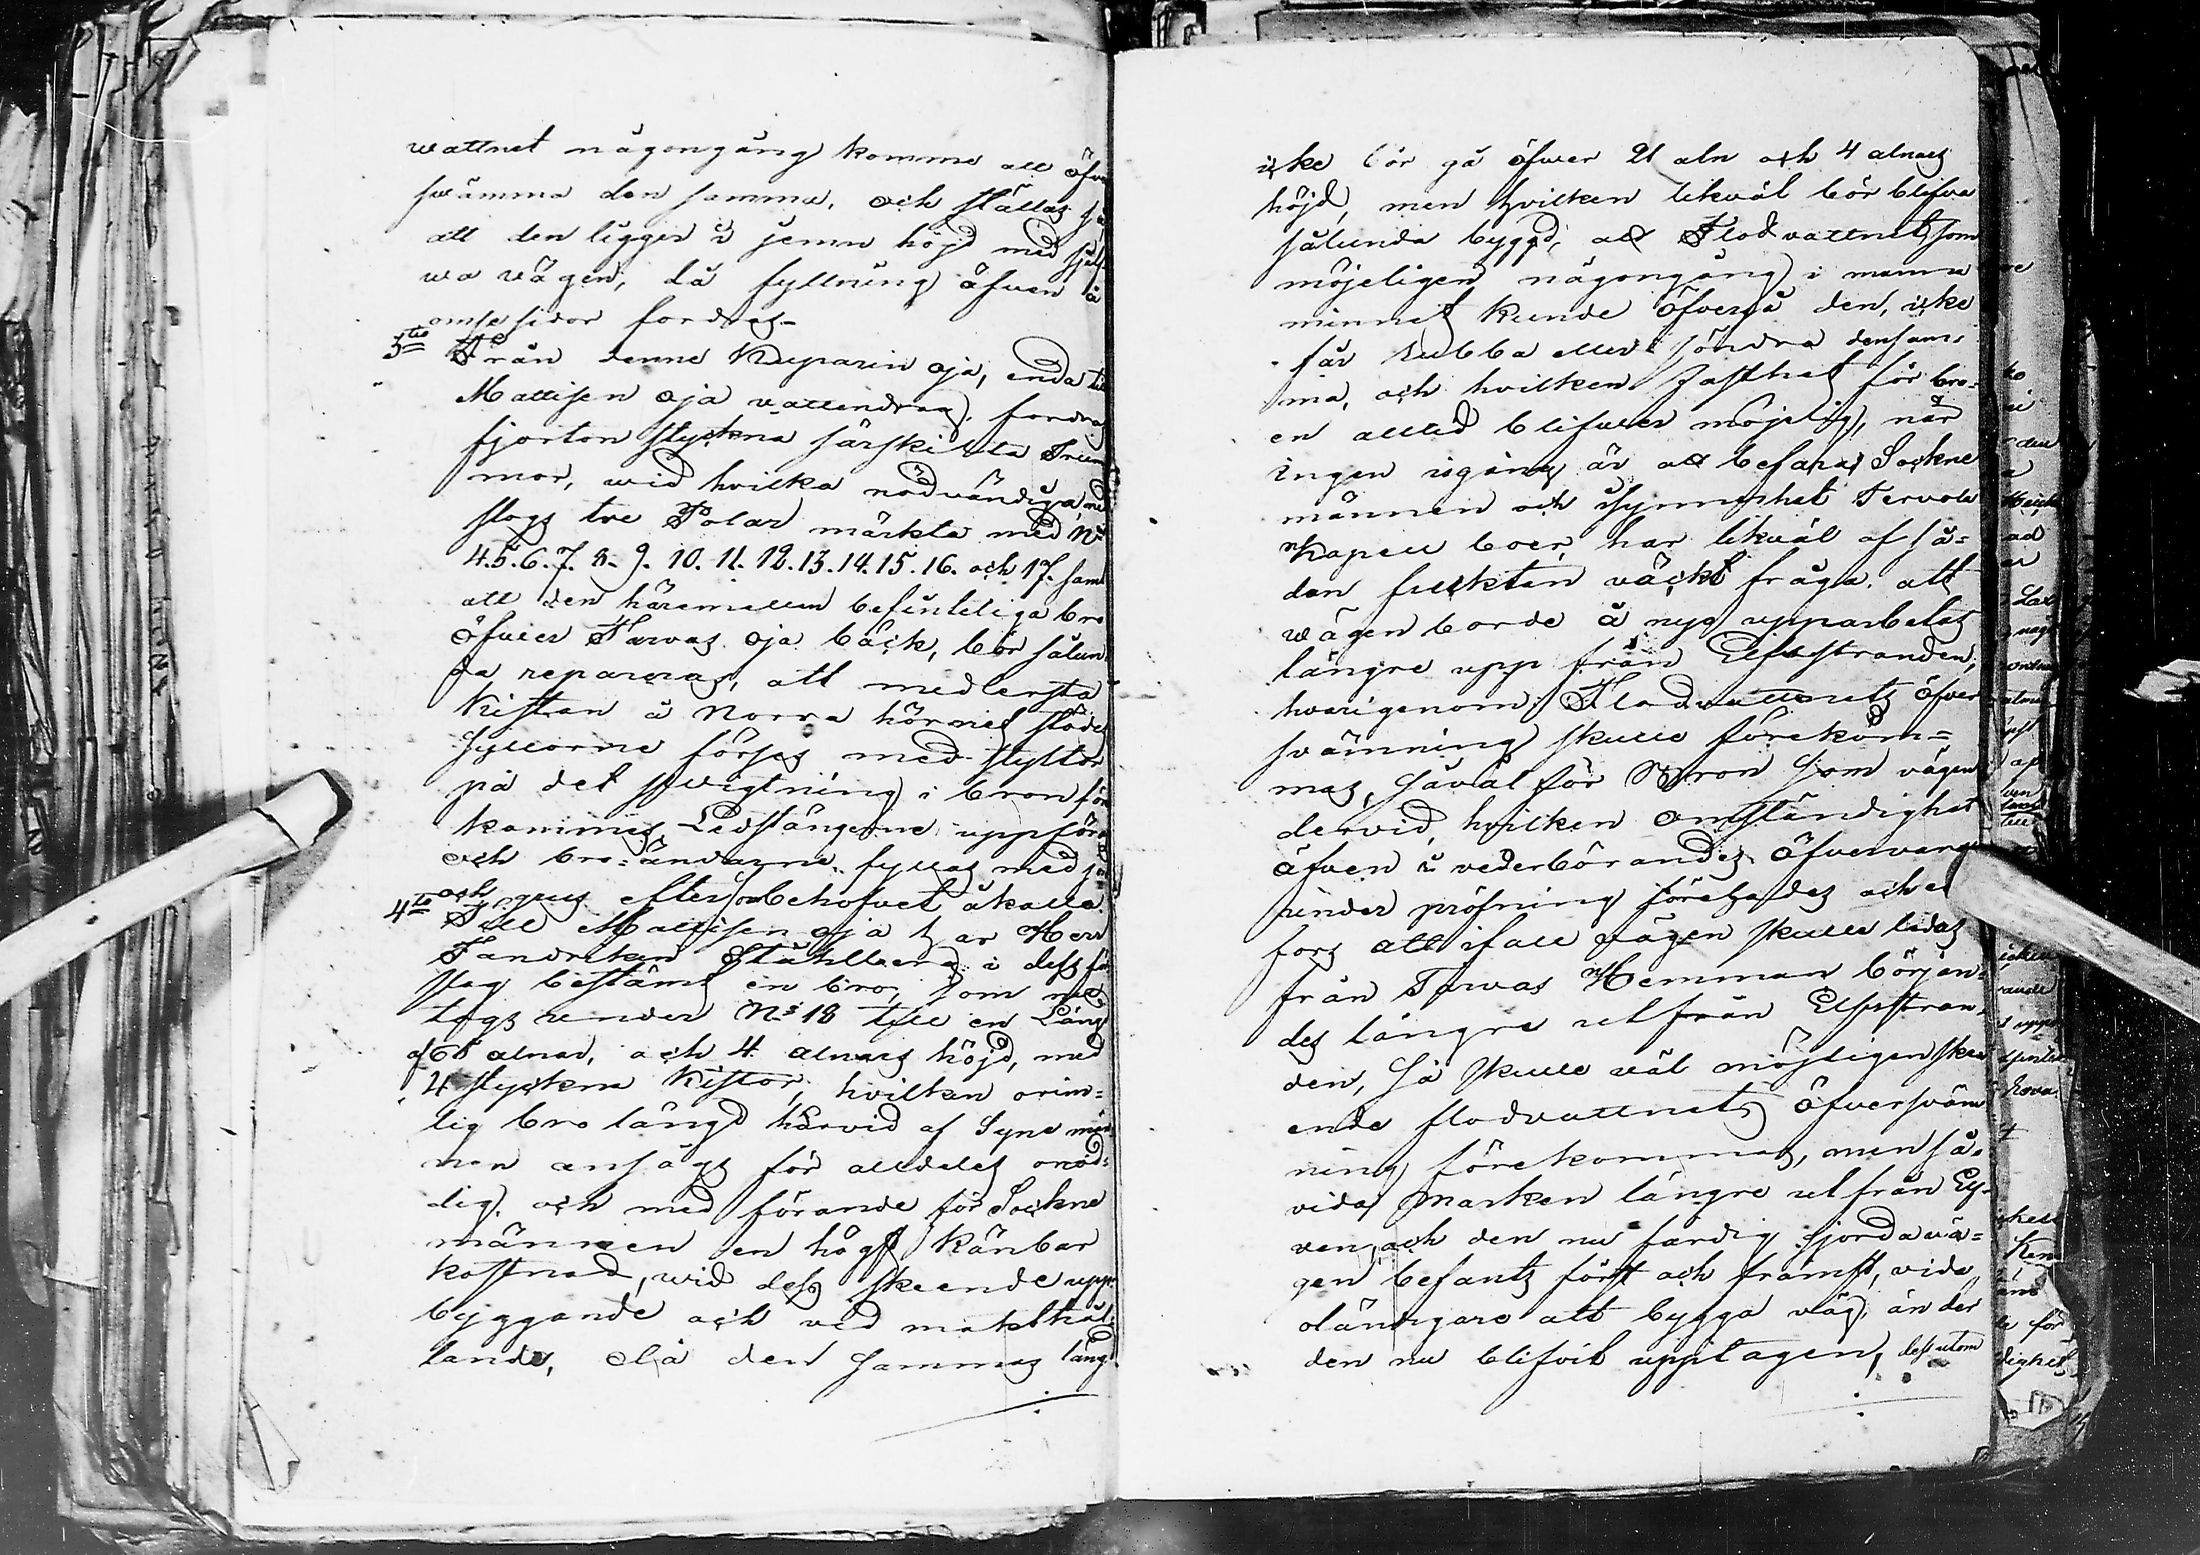 wattnet någongång komme att öfver
swämma den samma, och ställas så,
att den ligger i jemn höjd med sjelf
wa vägen, då fyllning äfven å
omse sidor fordras.
3tio Från denne Kuparin oja, enda till
Mattisen oja vattendrag, fordras
fjorton stycken särskilta Trum
mor, wid hvilka nödvändiga, ned
slogs tre Polar märkta med No
4. 5. 6. 7. 8. 9. 10. 11. 12. 13. 14. 15. 16. och 17. samt
att den häremellan befinteliga bro
öfver Tarvas oja bäck, bör sålun
da repareras, att medlersta
Kistan å Norra hörnet stödes
Syllorne förses med styltor
på det svigtning i bron före
kommes, Ledstängerne uppföras
och bro-ändarne fyllas med jord
och grus efter som behofvet åkallar.
4to Till Mattisen oja har Herr
Fendriken Ståhlberg i dess för
slag bestämt en bro, som upp
togs under No 18 till en Längd
af 68 alnar, och 4 alnars höjd, med
4 stycken Kistor, hvilken orim-
lig bro längd härvid af Syne män
nen ansågs för alldeles onöd-
dig, och med förande för Sockne
männen en högst känbar
kostnad, wid dess skeende upp
byggande och vid makthål-
lande, då den sammas längd
icke bör gå öfwer 21 aln och 4 alnars
höjd, men hvilken likväl bör blifva
sålunda byggd, att Flodvattnet som
möjeligen någongång i manna
minnet kunde öfvergå den, icke
får rubba eller söndra densam-
ma, och hvilken fasthet för bro-
en alltid blifver möjelig, när
ingen isgång är att befara, Sockne
männen och i synnerhet Tervola
Kapell boer, har likväl af så-
dan fucktan väckt fråga, att
wägen borde å nyo upparbetas
längre upp från Elfvstranden,
hvarigenom Flodvattnets öfver
svämning skulle förekom-
mas, såväl för Bron som vägen
dervid, hvilken omständighet
äfven i vederbörandes öfvervaro
under pröfning förehades och er
fors att ifall vägen skulle ledas
från Tarvas Hemman början-
des längre ut från Elfstran-
den, så skulle väl möjligen ske
ende flodvattnets öfversväm
ning förekommas, men så-
vida marken längre ut från Ey-
ven, och den nu färdig gjorda vä-
gen befants först och främst, vida
oländigare att bygga väg, än der
den nu blifvit upptagen, dessutom